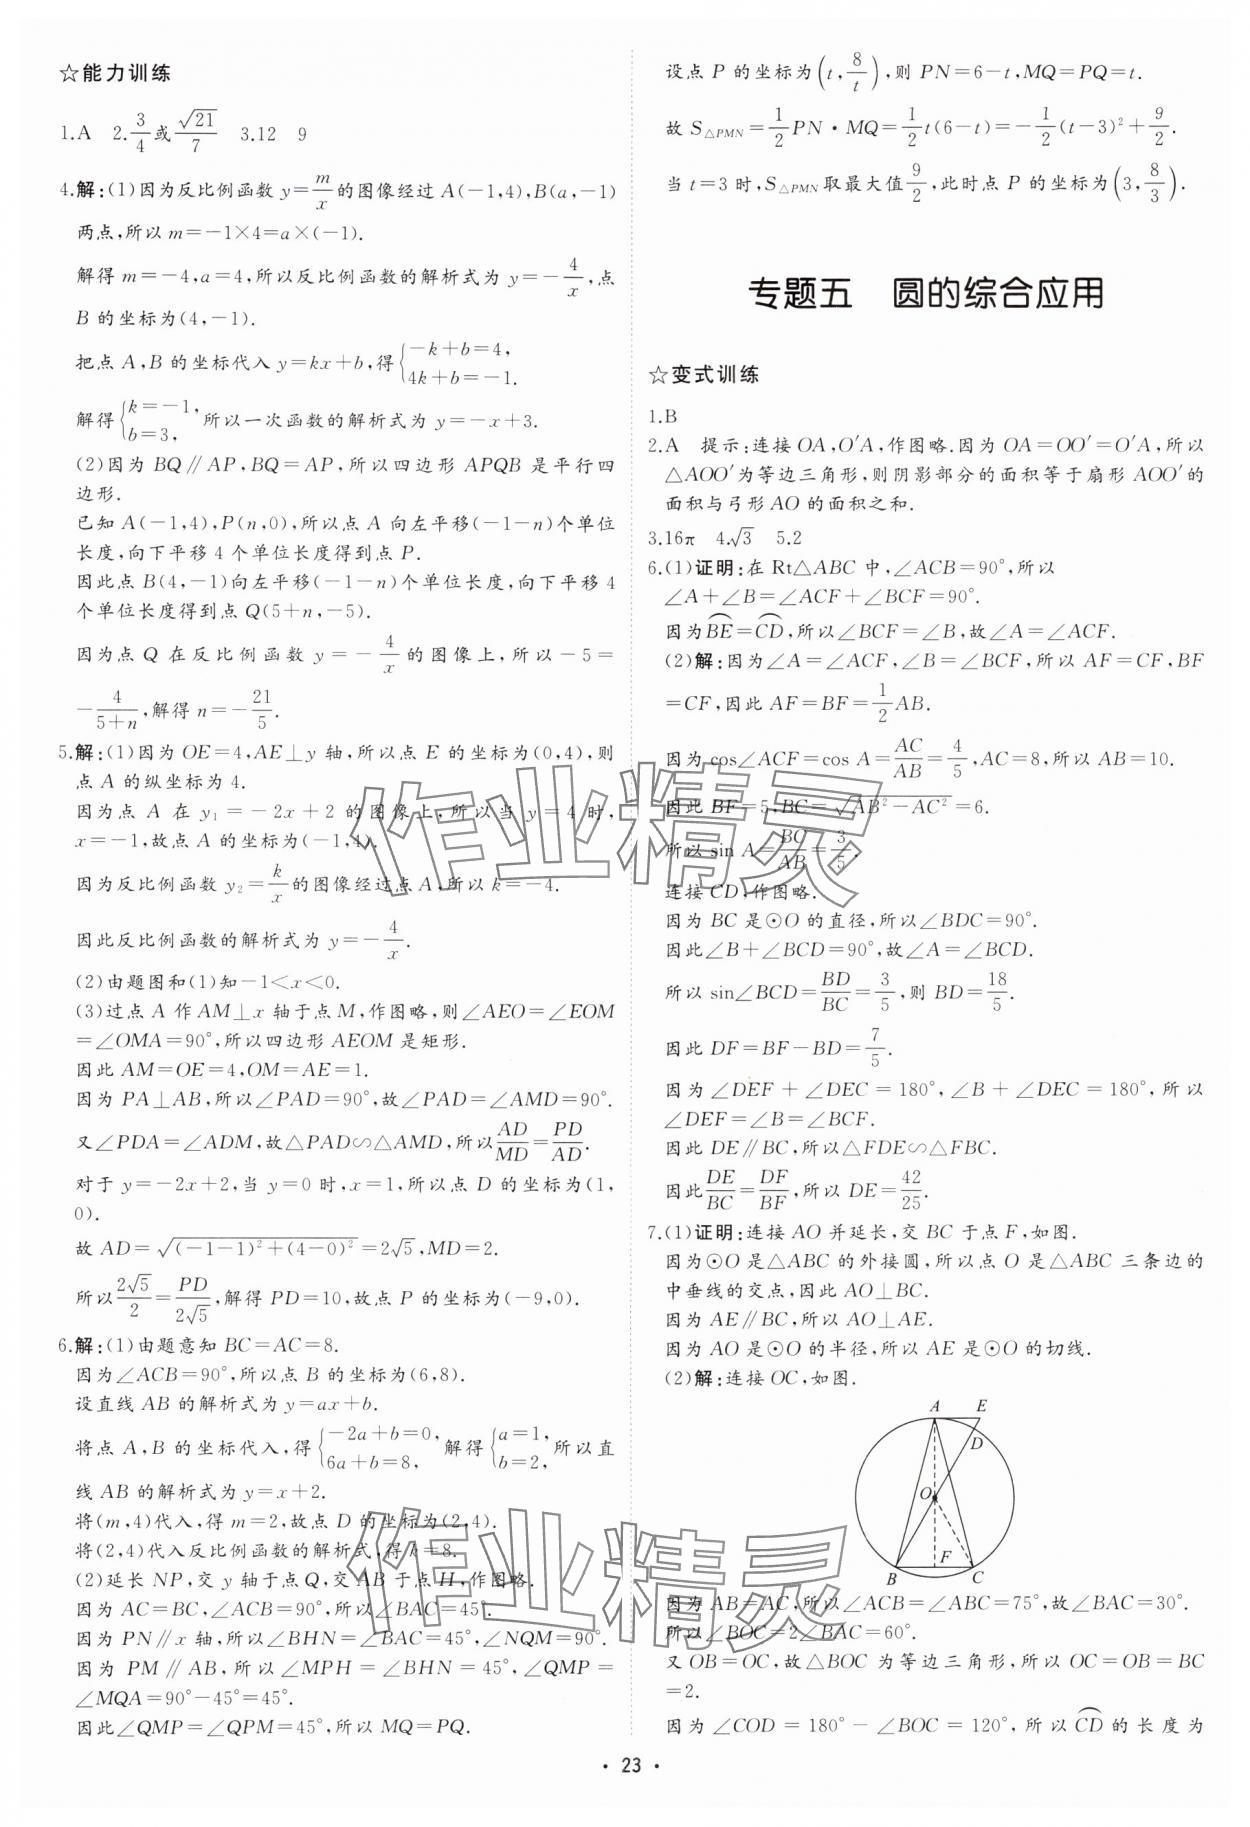 ☆能力训练
1.A　2.3/4或√21/7　3.12　9
4.解:(1)因为反比例函数 y=m/x的图像经过 A(-1,4),B(a,-1)
两点,所以 m=-1×4=a×(-1).
解得 m=-4,a=4,所以反比例函数的解析式为 y=-4/x,点
B 的坐标为(4,-1).
把点 A,B 的坐标代入 y=kx+b,得{-k+b=4, 4k+b=-1.
解得{k=-1, b=3, 所以一次函数的解析式为 y=-x+3.
(2)因为 BQ∥AP,BQ=AP,所以四边形 APQB 是平行四
边形.
已知 A(-1,4),P(n,0),所以点 A 向左平移(-1-n)个单位
长度,向下平移 4 个单位长度得到点 P.
因此点 B(4,-1)向左平移(-1-n)个单位长度,向下平移 4
个单位长度得到点 Q(5+n,-5).
因为点 Q 在反比例函数 y=-4/x的图像上,所以-5=
-4/(5+n),解得 n=-21/5.
5.解:(1)因为 OE=4,AE⊥y 轴,所以点 E 的坐标为(0,4),则
点 A 的纵坐标为 4.
因为点 A 在 y₁=-2x+2 的图像上,所以当 y=4 时,
x=-1,故点 A 的坐标为(-1,4).
因为反比例函数 y₂=k/x的图像经过点 A,所以 k=-4.
因此反比例函数的解析式为 y=-4/x.
(2)由题图和(1)知-1<x<0.
(3)过点 A 作 AM⊥x 轴于点 M,作图略,则∠AEO=∠EOM
=∠OMA=90°,所以四边形 AEOM 是矩形.
因此 AM=OE=4,OM=AE=1.
因为 PA⊥AB,所以∠PAD=90°,故∠PAD=∠AMD=90°.
又∠PDA=∠ADM,故△PAD∽△AMD,所以AD/MD=PD/AD.
对于 y=-2x+2,当 y=0 时,x=1,所以点 D 的坐标为(1,
0).
故 AD=√((-1-1)²+(4-0)²)=2√5,MD=2.
所以2√5/2=PD/2√5,解得 PD=10,故点 P 的坐标为(-9,0).
6.解:(1)由题意知 BC=AC=8.
因为∠ACB=90°,所以点 B 的坐标为(6,8).
设直线 AB 的解析式为 y=ax+b.
将点 A,B 的坐标代入,得{-2a+b=0, 6a+b=8, 解得{a=1, b=2, 所以直
线 AB 的解析式为 y=x+2.
将(m,4)代入,得 m=2,故点 D 的坐标为(2,4).
将(2,4)代入反比例函数的解析式,得 k=8.
(2)延长 NP,交 y 轴于点 Q,交 AB 于点 H,作图略.
因为 AC=BC,∠ACB=90°,所以∠BAC=45°.
因为 PN∥x 轴,所以∠BHN=∠BAC=45°,∠NQM=90°.
因为 PM∥AB,所以∠MPH=∠BHN=45°,∠QMP=
∠MQA=90°-45°=45°.
因此∠QMP=∠QPM=45°,所以 MQ=PQ.
设点 P 的坐标为(t,8/t),则 PN=6-t,MQ=PQ=t.
故 S△PMN=1/2PN·MQ=1/2t(6-t)=-1/2(t-3)²+9/2.
当 t=3 时,S△PMN取最大值9/2,此时点 P 的坐标为(3,8/3).
专题五　圆的综合应用
☆变式训练
1.B
2.A　提示:连接 OA,O′A,作图略.因为 OA=OO′=O′A,所以
△AOO′为等边三角形,则阴影部分的面积等于扇形 AOO′的
面积与弓形 AO 的面积之和.
3.16π　4.√3　5.2
6.(1)证明:在 Rt△ABC 中,∠ACB=90°,所以
∠A+∠B=∠ACF+∠BCF=90°.
因为BE⌒=CD⌒,所以∠BCF=∠B,故∠A=∠ACF.
(2)解:因为∠A=∠ACF,∠B=∠BCF,所以 AF=CF,BF
=CF,因此 AF=BF=1/2AB.
因为 cos∠ACF=cos A=AC/AB=4/5,AC=8,所以 AB=10.
因此 BF=5,BC=√(AB²-AC²)=6.
所以 sin A=BC/AB=3/5.
连接 CD,作图略.
因为 BC 是⊙O 的直径,所以∠BDC=90°.
因此∠B+∠BCD=90°,故∠A=∠BCD.
所以 sin∠BCD=BD/BC=3/5,则 BD=18/5.
因此 DF=BF-BD=7/5.
因为∠DEF+∠DEC=180°,∠B+∠DEC=180°,所以
∠DEF=∠B=∠BCF.
因此 DE∥BC,所以△FDE∽△FBC.
因此DE/BC=DF/BF,所以 DE=42/25.
7.(1)证明:连接 AO 并延长,交 BC 于点 F,如图.
因为⊙O 是△ABC 的外接圆,所以点 O 是△ABC 三条边的
中垂线的交点,因此 AO⊥BC.
因为 AE∥BC,所以 AO⊥AE.
因为 AO 是⊙O 的半径,所以 AE 是⊙O 的切线.
(2)解:连接 OC,如图.
A E
D
O
F
B C
因为 AB=AC,所以∠ACB=∠ABC=75°,故∠BAC=30°.
所以∠BOC=2∠BAC=60°.
又 OB=OC,故△BOC 为等边三角形,所以 OC=OB=BC
=2.
因为∠COD=180°-∠BOC=120°,所以CD⌒的长度为
作业精灵
作业精灵
· 23 ·